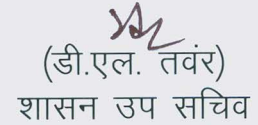 (डी.एल. तवंर)
शासन उप सचिव